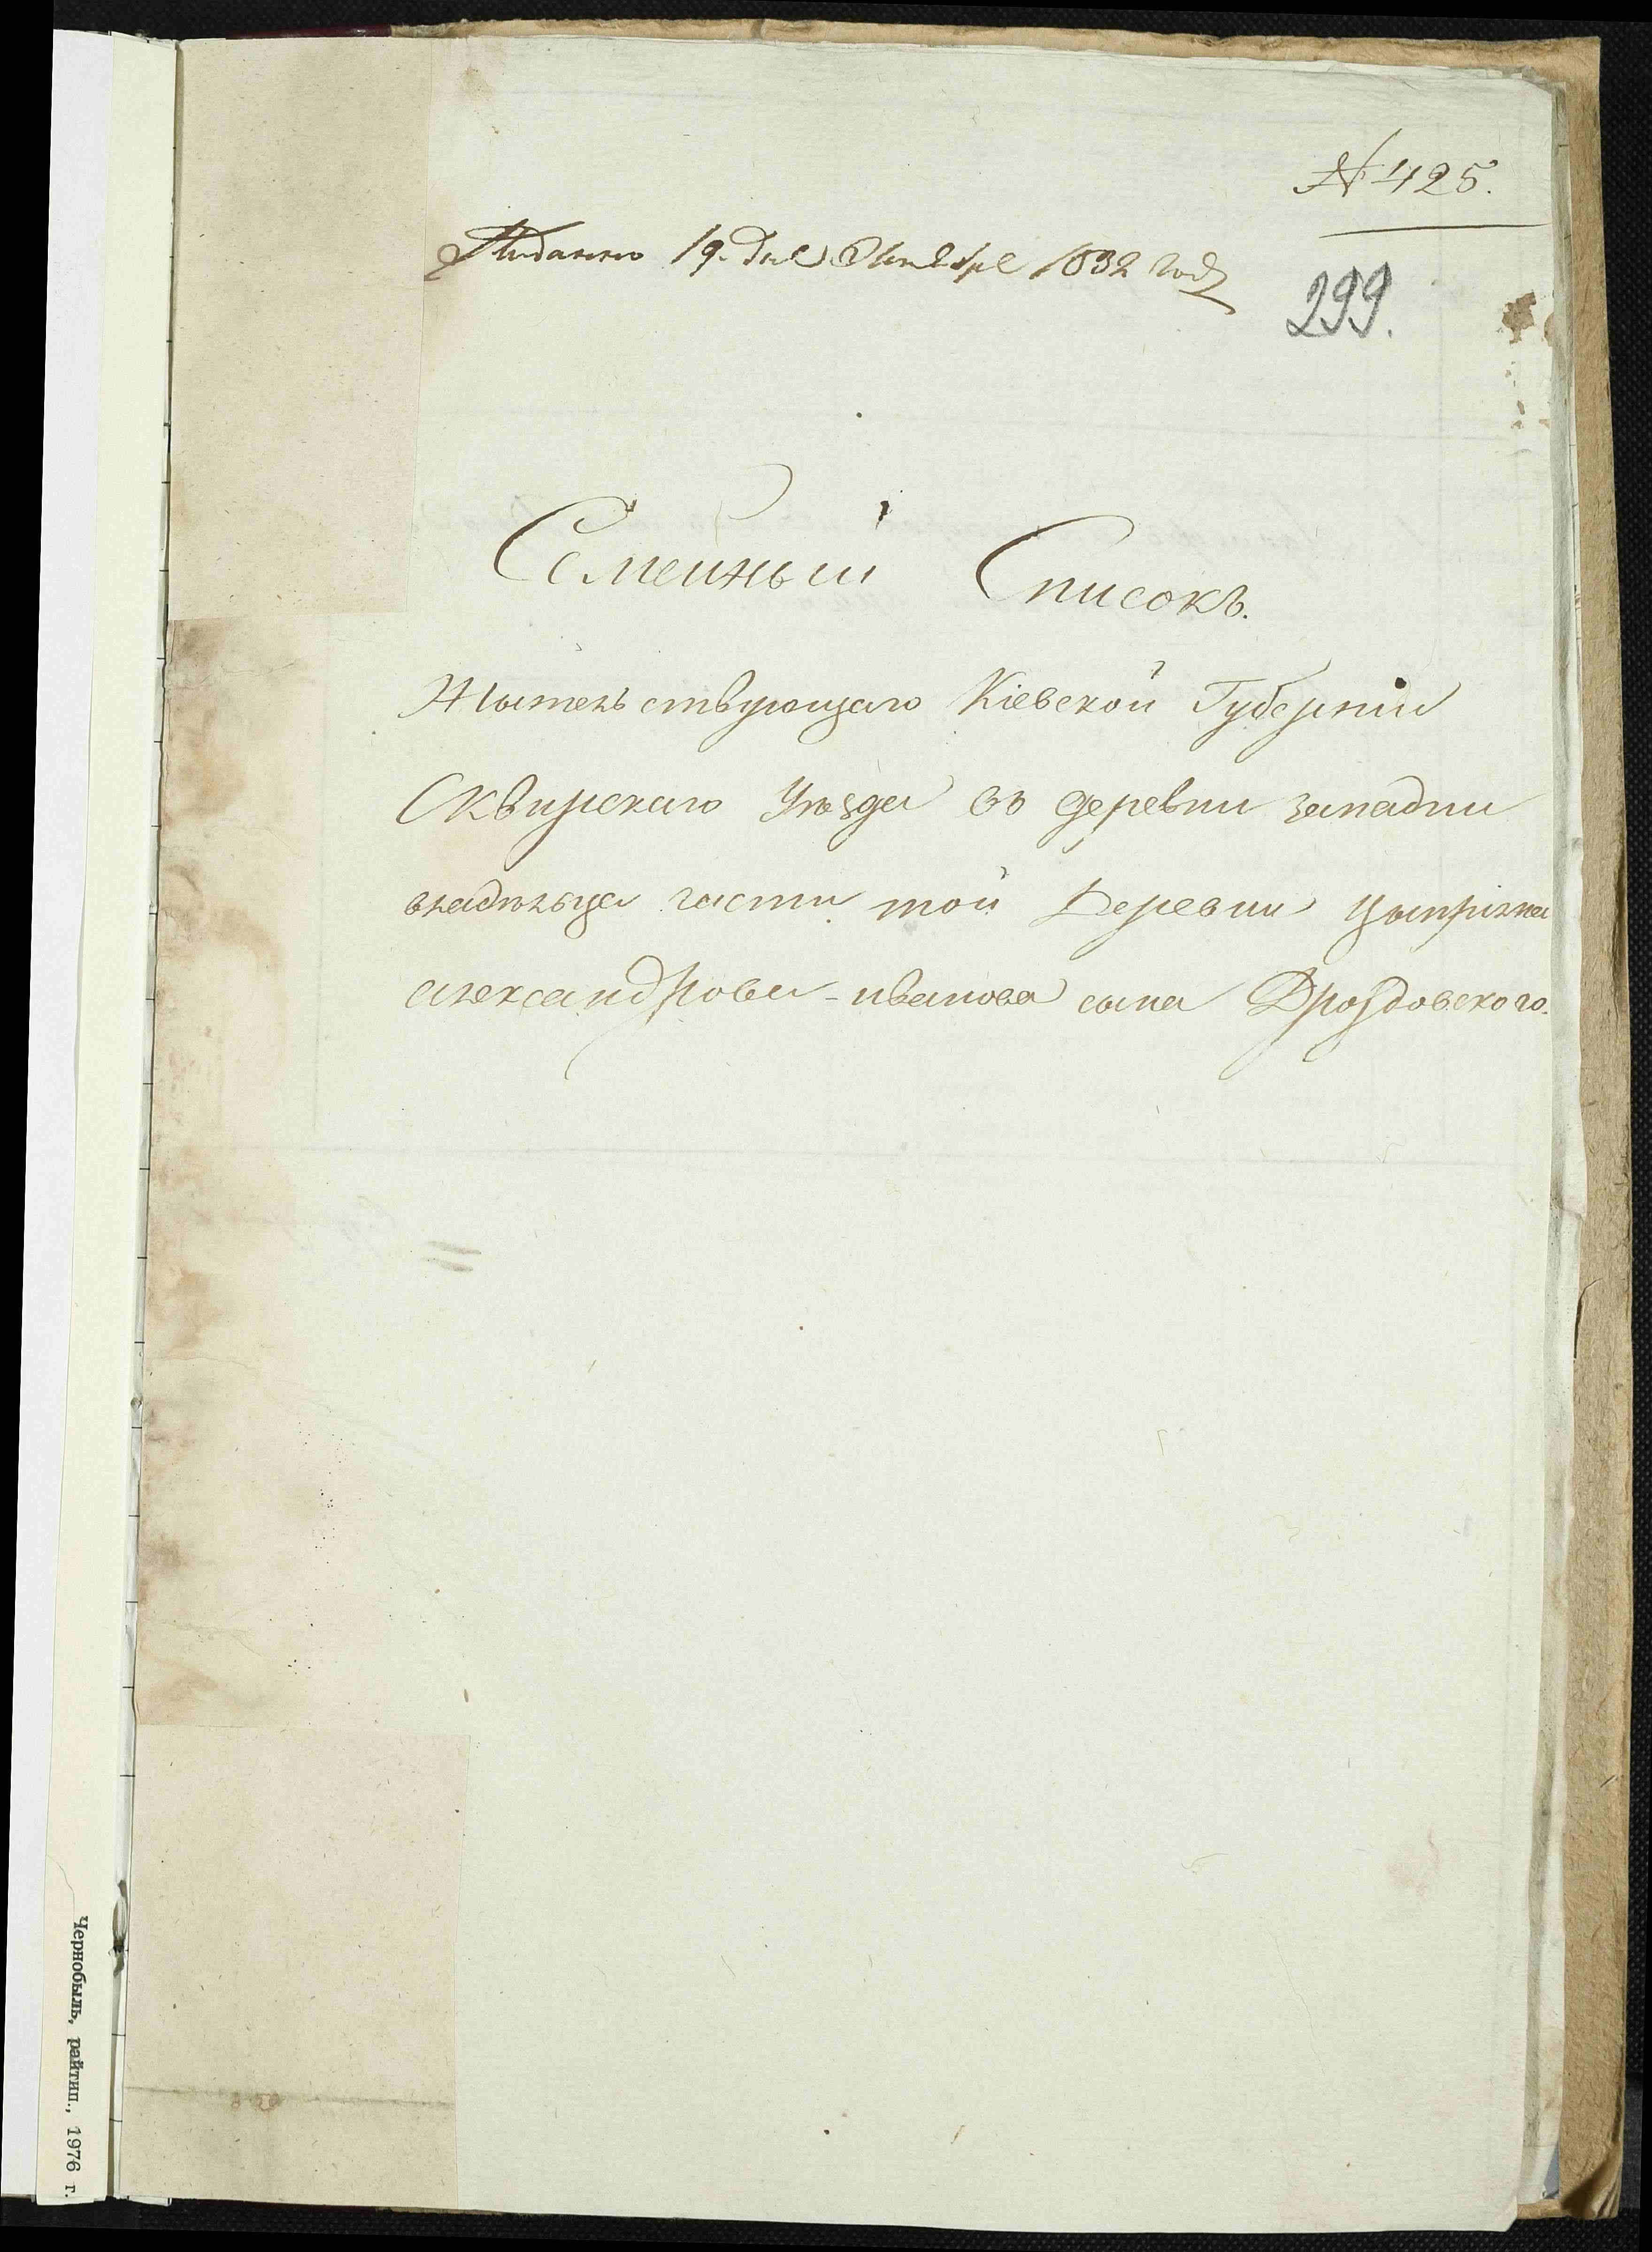 № 425.
Подано 19. дня Октября 1832 года
299.
Семейный Списокъ.
Жытельствующаго Кіевской Губерніи
Сквирскаго Уѣзда въ деревни западни
владѣльца части той Деревни Цыпріяна
александрова-иванова сына Дроздовского.
Чернобыль, райтип., 1976 г.